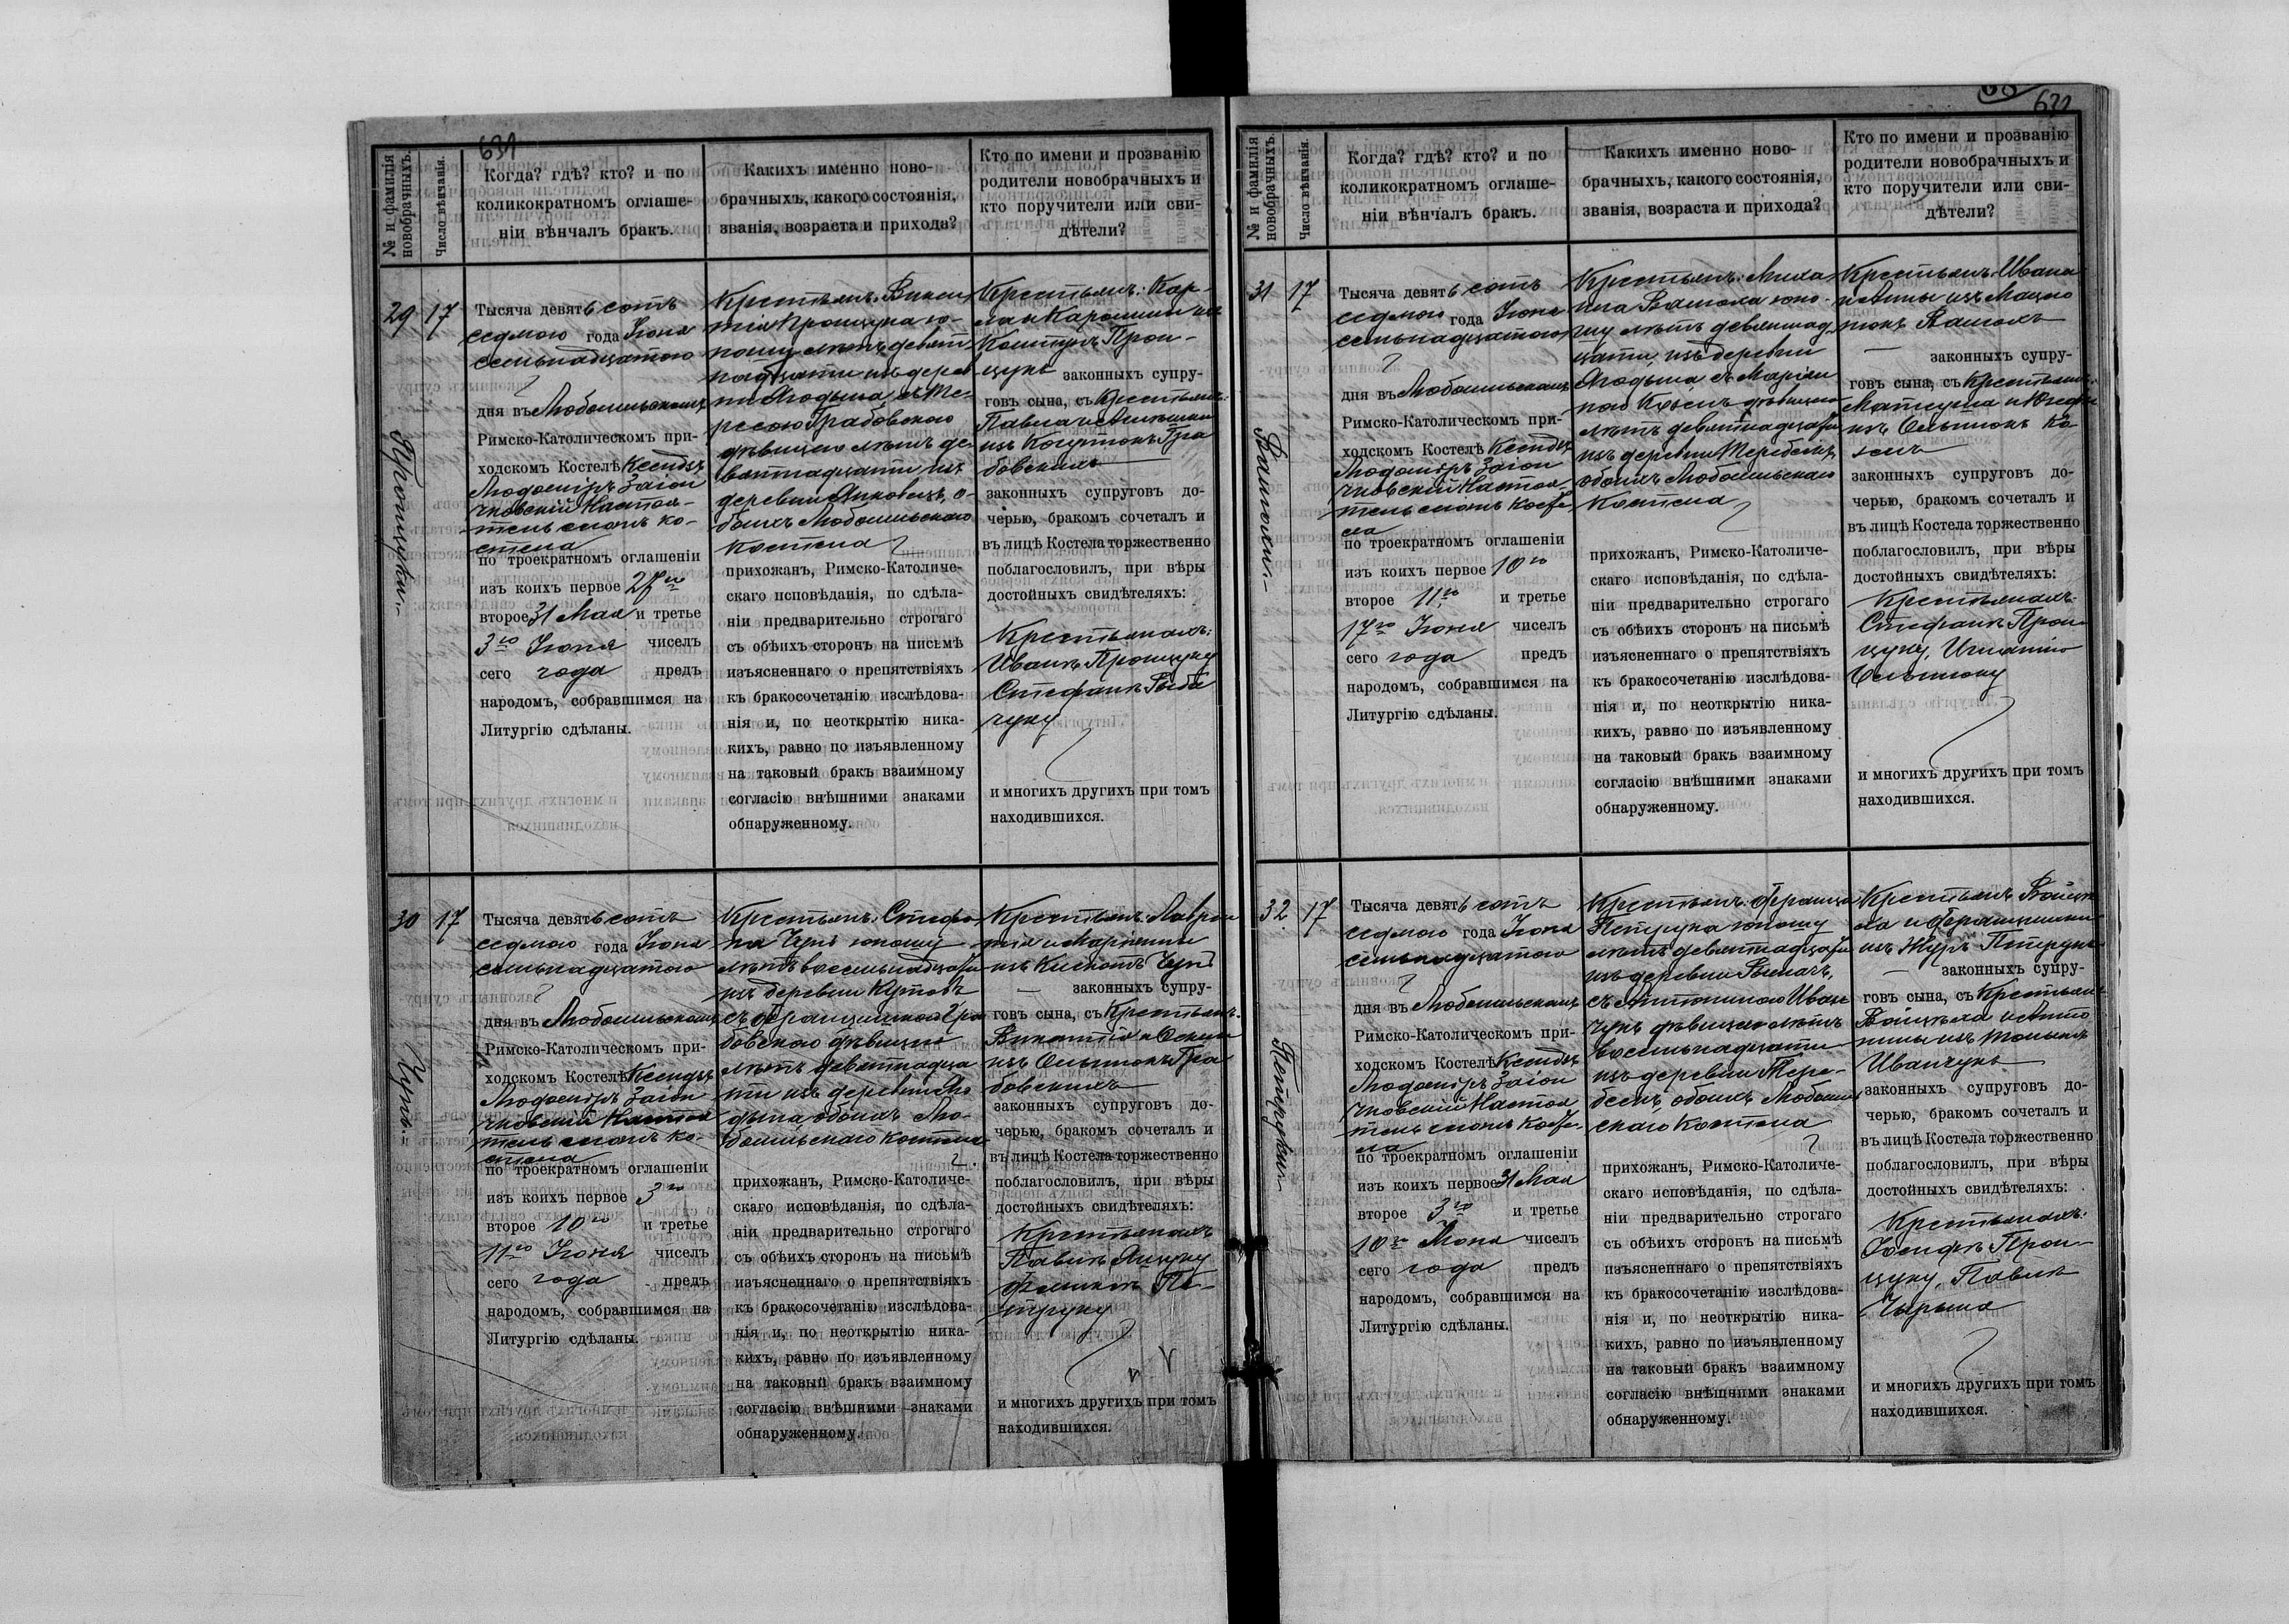 631
№ и фамилія новобрачныхъ.
Число вѣнчанія.
Когда? гдѣ? кто? и по
коликократномъ оглаше-
ніи вѣнчалъ бракъ.
Какихъ именно ново-
брачныхъ, какого состоянія,
званія, возраста и прихода?
Кто по имени и прозванію
родители новобрачныхъ и
кто поручители или сви-
дѣтели?
29
17
Тысяча девятьсотъ
седмого года Іюня
семьнадцатого
дня въ Любомльскомъ
Римско-Католическомъ при-
ходскомъ Костелѣ Ксендзъ
чковскій Настоя-
тель сего ко-
стела
по троекратномъ оглашеніи
изъ коихъ первое 27го
второе 31 Мая и третье
3го Іюня чиселъ
сего года предъ
народомъ, собравшимся на
Литургію сдѣланы.
Крестьянъ: Викен
тія Прощука ю-
ношу лѣтъ девят-
надцати изъ дерев
ни Ягодына съ Те-
ресою Грабовскою
дѣвицею лѣтъ де
вятнадцати изъ
деревни Янковецъ, о-
боихъ Любомльскаго
Костела
прихожанъ, Римско-Католиче-
скаго исповѣданія, по сдѣла-
ніи предварительно строгаго
съ обѣихъ сторонъ на письмѣ
изъясненнаго о препятствіяхъ
къ бракосочетанію изслѣдова-
нія и, по неоткрытію ника-
кихъ, равно по изъявленному
на таковый бракъ взаимному
согласію внѣшними знаками
обнаруженному.
Крестьянъ: Кар-
ла и Каролины изъ
Прон-
щукъ законныхъ супру-
говъ сына, съ Крестьянъ:
Павла и
изъ Когутюкъ Гра
бовскихъ
законныхъ супруговъ до-
черью, бракомъ сочеталъ и
въ лицѣ Костела торжественно
поблагословилъ, при вѣры
достойныхъ свидѣтеляхъ:
Крестьянахъ:
Иванѣ Прощуку
Стефанѣ Рыба
чуку
и многихъ другихъ при томъ
находившихся.
30
17
Тысяча девятьсотъ
седмого года Іюня
семьнадцатого
дня въ Любомльскомъ
Римско-Католическомъ при-
ходскомъ Костелѣ Ксендзъ
чковскій Настоя
тель сего ко-
стела
по троекратномъ оглашеніи
изъ коихъ первое 3го
второе 10го и третье
11го Іюня чиселъ
сего года предъ
народомъ, собравшимся на
Литургію сдѣланы.
Крестьянъ: Стефа
на юношу
лѣтъ восемьнадцати
изъ деревни Кутовъ
съ Францишкою Гра
бовскою дѣвицею
лѣтъ девятнадца
ти изъ деревни Яго
дына, обоихъ Лю-
бомльскаго костела
прихожанъ, Римско-Католиче-
скаго исповѣданія, по сдѣла-
ніи предварительно строгаго
съ обѣихъ сторонъ на письмѣ
изъясненнаго о препятствіяхъ
къ бракосочетанію изслѣдова-
нія и, по неоткрытію ника-
кихъ, равно по изъявленному
на таковый бракъ взаимному
согласію внѣшними знаками
обнаруженному.
Крестьянъ: Лаврен
тія и Маріанны
изъ
законныхъ супру-
говъ сына, съ Крестьянъ:
Викентія и
изъ Ольшюкъ Гра
бовскихъ
законныхъ супруговъ до-
черью, бракомъ сочеталъ и
въ лицѣ Костела торжественно
поблагословилъ, при вѣры
достойныхъ свидѣтеляхъ:
Крестьянахъ
Павлѣ Яцуку
Пе-
труку
и многихъ другихъ при томъ
находившихся.
632
№ и фамилія новобрачныхъ.
Число вѣнчанія.
Когда? гдѣ? кто? и по
коликократномъ оглаше-
ніи вѣнчалъ бракъ.
Какихъ именно ново-
брачныхъ, какого состоянія,
званія, возраста и прихода?
Кто по имени и прозванію
родители новобрачныхъ и
кто поручители или сви-
дѣтели?
31
17
Тысяча девятьсотъ
седмого года Іюня
семьнадцатого
дня въ Любомльскомъ
Римско-Католическомъ при-
ходскомъ Костелѣ Ксендзъ
чковскій Настоя-
тель сего Косте
ла
по троекратномъ оглашеніи
изъ коихъ первое 10го
второе 11го и третье
17го Іюня чиселъ
сего года предъ
народомъ, собравшимся на
Литургію сдѣланы.
Крестьянъ: Миха
ила юно-
шу лѣтъ девятнад
цати, изъ деревни
Ягодына съ Маріан
ною дѣвицею
лѣтъ девятнадцати
изъ деревни Теребеекъ
обоихъ Любомльскаго
Костела
прихожанъ, Римско-Католиче-
скаго исповѣданія, по сдѣла-
ніи предварительно строгаго
съ обѣихъ сторонъ на письмѣ
изъясненнаго о препятствіяхъ
къ бракосочетанію изслѣдова-
нія и, по неоткрытію ника-
кихъ, равно по изъявленному
на таковый бракъ взаимному
согласію внѣшними знаками
обнаруженному.
Крестьянъ: Ивана
и Анны изъ
законныхъ супру-
говъ сына, съ Крестьянъ:
изъ Ольшюкъ
законныхъ супруговъ до-
черью, бракомъ сочеталъ и
въ лицѣ Костела торжественно
поблагословилъ, при вѣры
достойныхъ свидѣтеляхъ:
Крестьянахъ:
Стефанѣ Прон-
щуку, Игнатію
Ольшюку
и многихъ другихъ при томъ
находившихся.
32
17
Петруки
Тысяча девятьсотъ
седмого года Іюня
семьнадцатого
дня въ Любомльскомъ
Римско-Католическомъ при-
ходскомъ Костелѣ Ксендзъ
чковскій Настоя
тель сего Косте
ла
по троекратномъ оглашеніи
изъ коихъ первое 31 Мая
второе 3го и третье
10го Іюня чиселъ
сего года предъ
народомъ, собравшимся на
Литургію сдѣланы.
Крестьянъ: Франца
Петрука юношу
лѣтъ девятнадцати
изъ деревни Рымачъ,
съ Антониною Иван
чукъ дѣвицею лѣтъ
восемьнадцати
изъ деревни Тере-
беекъ, обоихъ Любомль
скаго Костела
прихожанъ, Римско-Католиче-
скаго исповѣданія, по сдѣла-
ніи предварительно строгаго
съ обѣихъ сторонъ на письмѣ
изъясненнаго о препятствіяхъ
къ бракосочетанію изслѣдова-
нія и, по неоткрытію ника-
кихъ, равно по изъявленному
на таковый бракъ взаимному
согласію внѣшними знаками
обнаруженному.
Крестьянъ Войцѣ
ха и Францишки
изъ Журъ Петрукъ
законныхъ супру-
говъ сына, съ Крестьян:
Войцѣха и Анто
нины изъ
Иванчукъ
законныхъ супруговъ до-
черью, бракомъ сочеталъ и
въ лицѣ Костела торжественно
поблагословилъ, при вѣры
достойныхъ свидѣтеляхъ:
Крестьянахъ:
Іосифѣ Прон-
щуку, Павлѣ
и многихъ другихъ при томъ
находившихся.